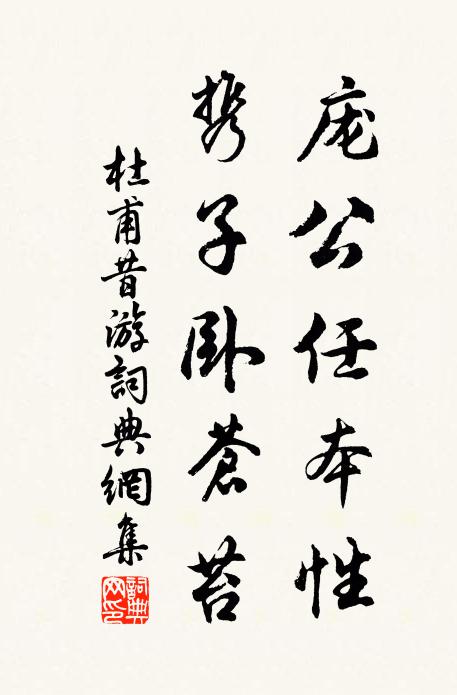 庞公任本性
携子卧苍苔
杜甫昔游詞典網集
詞典网印